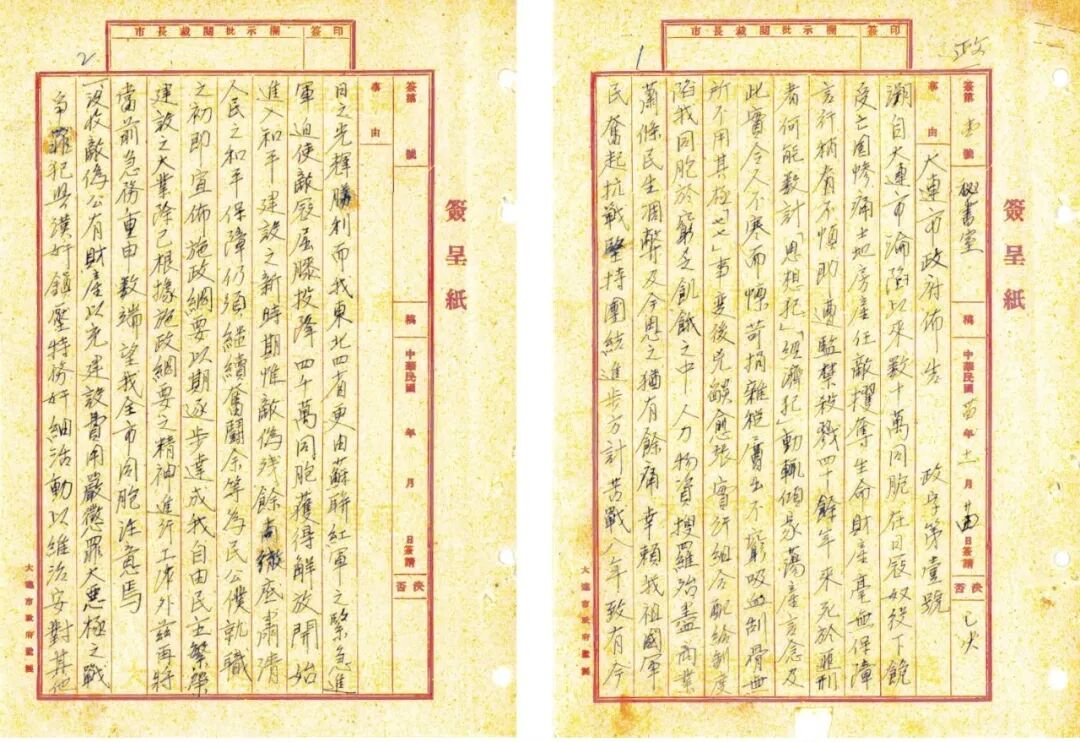 政
1
市長裁閱批示欄 簽印
簽呈紙
簽第 壹 號 秘書室 稿 中華民國 卅四 年 十一 月 廿四 日簽請 決否 已決
事由 大連市政府佈告 政字第壹號
溯自大連市淪陷以來數十萬同胞在日寇奴役下飽
受亡國慘痛土地房產任敵攫奪生命財產毫無保障
言行稍有不慎即遭監禁殺戮四十餘年來死於非刑
者何能數計「思想犯」「經濟犯」動輒傾家蕩產言念及
此實令人不寒而慄苛捐雜稅層出不窮吸血刮骨無
所不用其極「七七」事變後兇燄愈張實行組合配給制度
陷我同胞於窮乏飢餓之中人力物資搜羅殆盡商業
蕭條民生凋弊及今思之猶有餘痛幸賴我祖國軍
民奮起抗戰堅持團結進步方計苦戰八年致有今
大連市政府監製
2
市長裁閱批示欄 簽印
簽呈紙
簽第 號 稿 中華民國 年 月 日簽請 決否
事由
日之光輝勝利而我東北四省更由蘇聯紅軍之緊急進
軍迫使敵寇屈膝投降四千萬同胞獲得解放開始
進入和平建設之新時期惟敵偽殘餘尚待徹底肅清
人民之和平保障仍須繼續奮鬪余等為民公僕就職
之初即宣佈施政綱要以期逐步達成我自由民主繁榮
建設之大業除已根據施政綱要之精神進行工作外茲再將
當前急務重申數端望我全市同胞注意焉
一沒收敵偽公有財產以充建設費用嚴懲罪大惡極之戰
爭罪犯與漢奸鎮壓特務奸細活動以維治安對其他
大連市政府監製